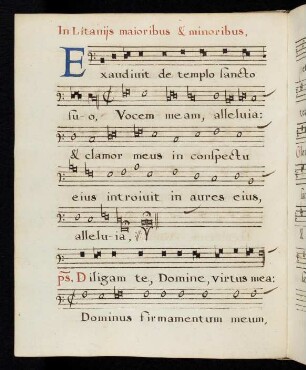 In Litanijs maioribus & minoribus,
Exaudiuit de templo sancto
suo, Vocem meam, alleluia:
& clamor meus in conspectu
eius introiuit in aures eius,
alleluia,
ps. Diligam te, Domine, virtus mea:
Dominus firmamentum meum,